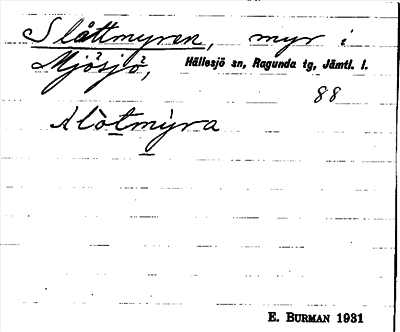 Slåttmyren, myr i
Mjösjö, Hällesjö sn, Ragunda tg, Jämtl. l.
88
E. BURMAN 1931